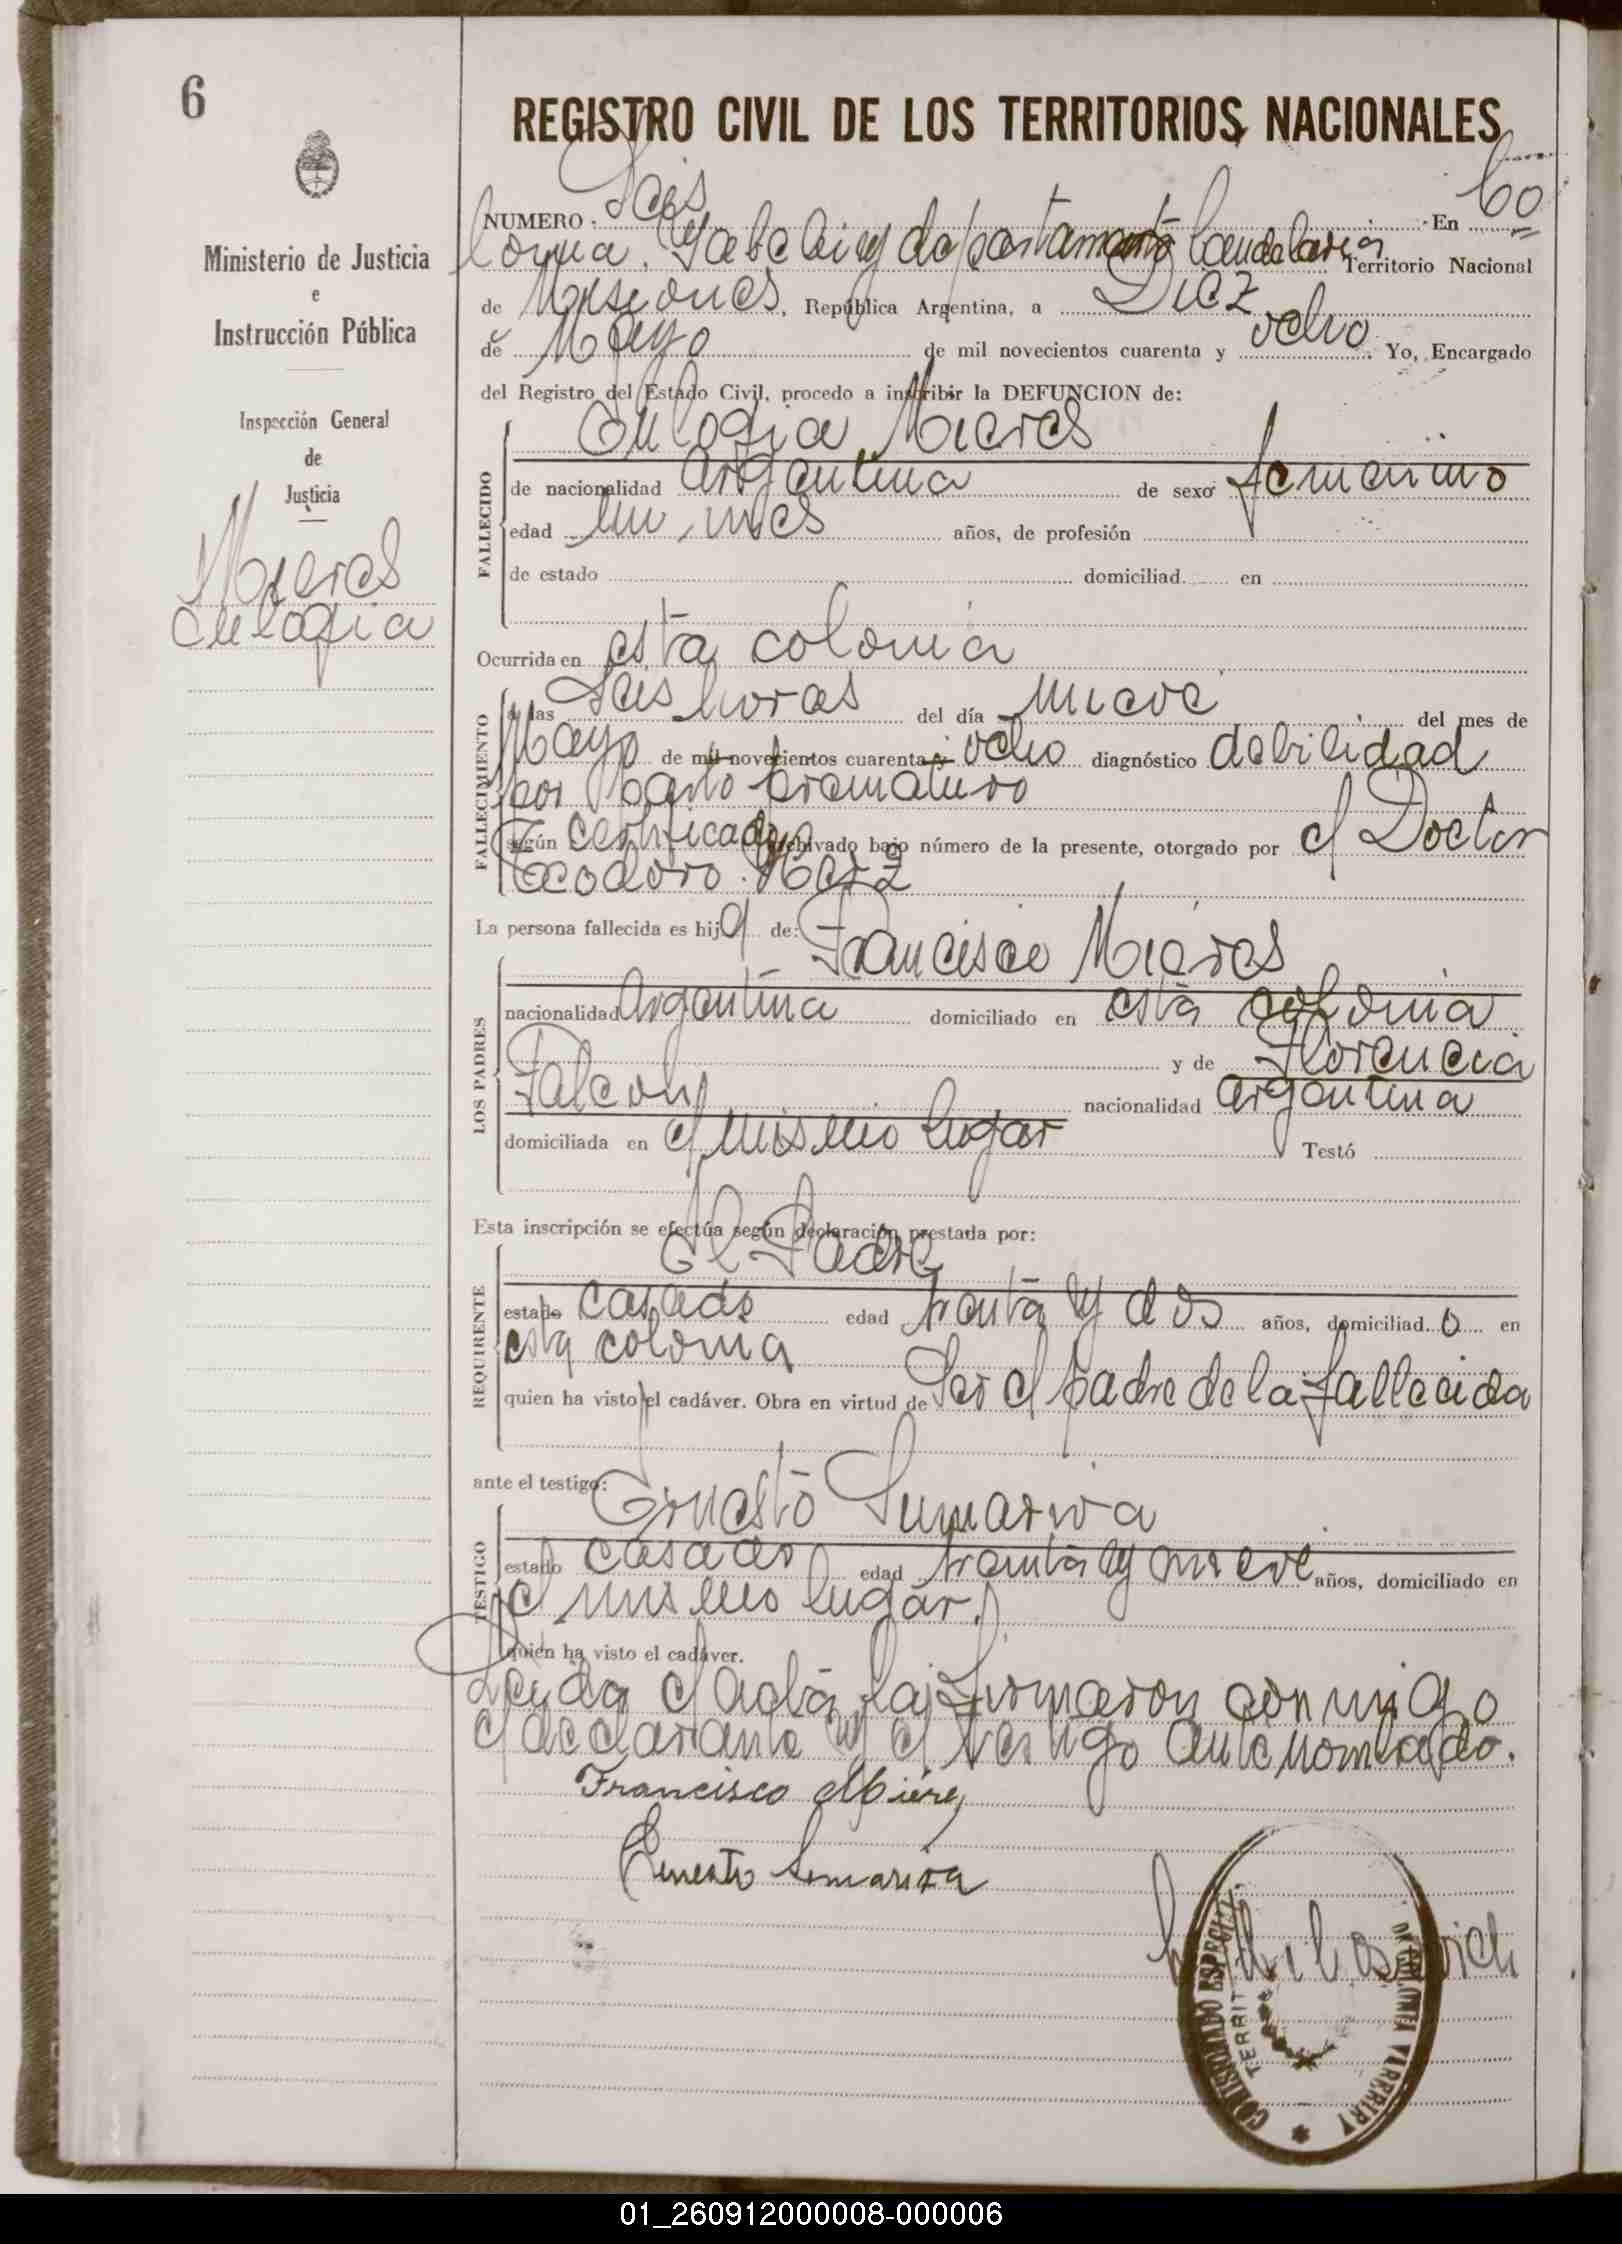 6
REGISTRO CIVIL DE LOS TERRITORIOS NACIONALES
Ministerio de Justicia
e
Instrucción Pública
Inspección General
de
Justicia
Mieres
Eulogia
NUMERO Seis En Co
lonia Yabebiry departamento Candelaria Territorio Nacional
de Misiones, República Argentina, a Diez
de Mayo de mil novecientos cuarenta y ocho. Yo, Encargado
del Registro del Estado Civil, procedo a inscribir la DEFUNCION de:
Eulogia Mieres
FALLECIDO
de nacionalidad argentina de sexo femenino
edad un mes años, de profesión
de estado domiciliad en
Ocurrida en esta colonia
FALLECIMIENTO
a las Seis horas del día nueve del mes de
Mayo de mil novecientos cuarenta y ocho diagnóstico debilidad
por parto prematuro
según certificado archivado bajo número de la presente, otorgado por el Doctor
Teodoro
La persona fallecida es hija de: Francisco Mieres
LOS PADRES
nacionalidad Argentina domiciliado en esta colonia
y de Florencia
Falcon nacionalidad argentina
domiciliada en el mismo lugar Testó
Esta inscripción se efectúa según declaración prestada por:
El Padre
REQUIRENTE
estado casado edad treinta y dos años, domiciliado en
esta colonia
quien ha visto el cadáver. Obra en virtud de Ser el padre de la fallecida
ante el testigo:
Ernesto Sumariva
TESTIGO
estado casado edad treinta y nueve años, domiciliado en
el mismo lugar.
quien ha visto el cadáver.
Leida el acta la firmaron conmigo
el declarante y el testigo antenombrado.
Francisco Mieres
Ernesto Somariva
COMISARIADO ESPECIAL
TERRIT
DE COL
01_260912000008-000006